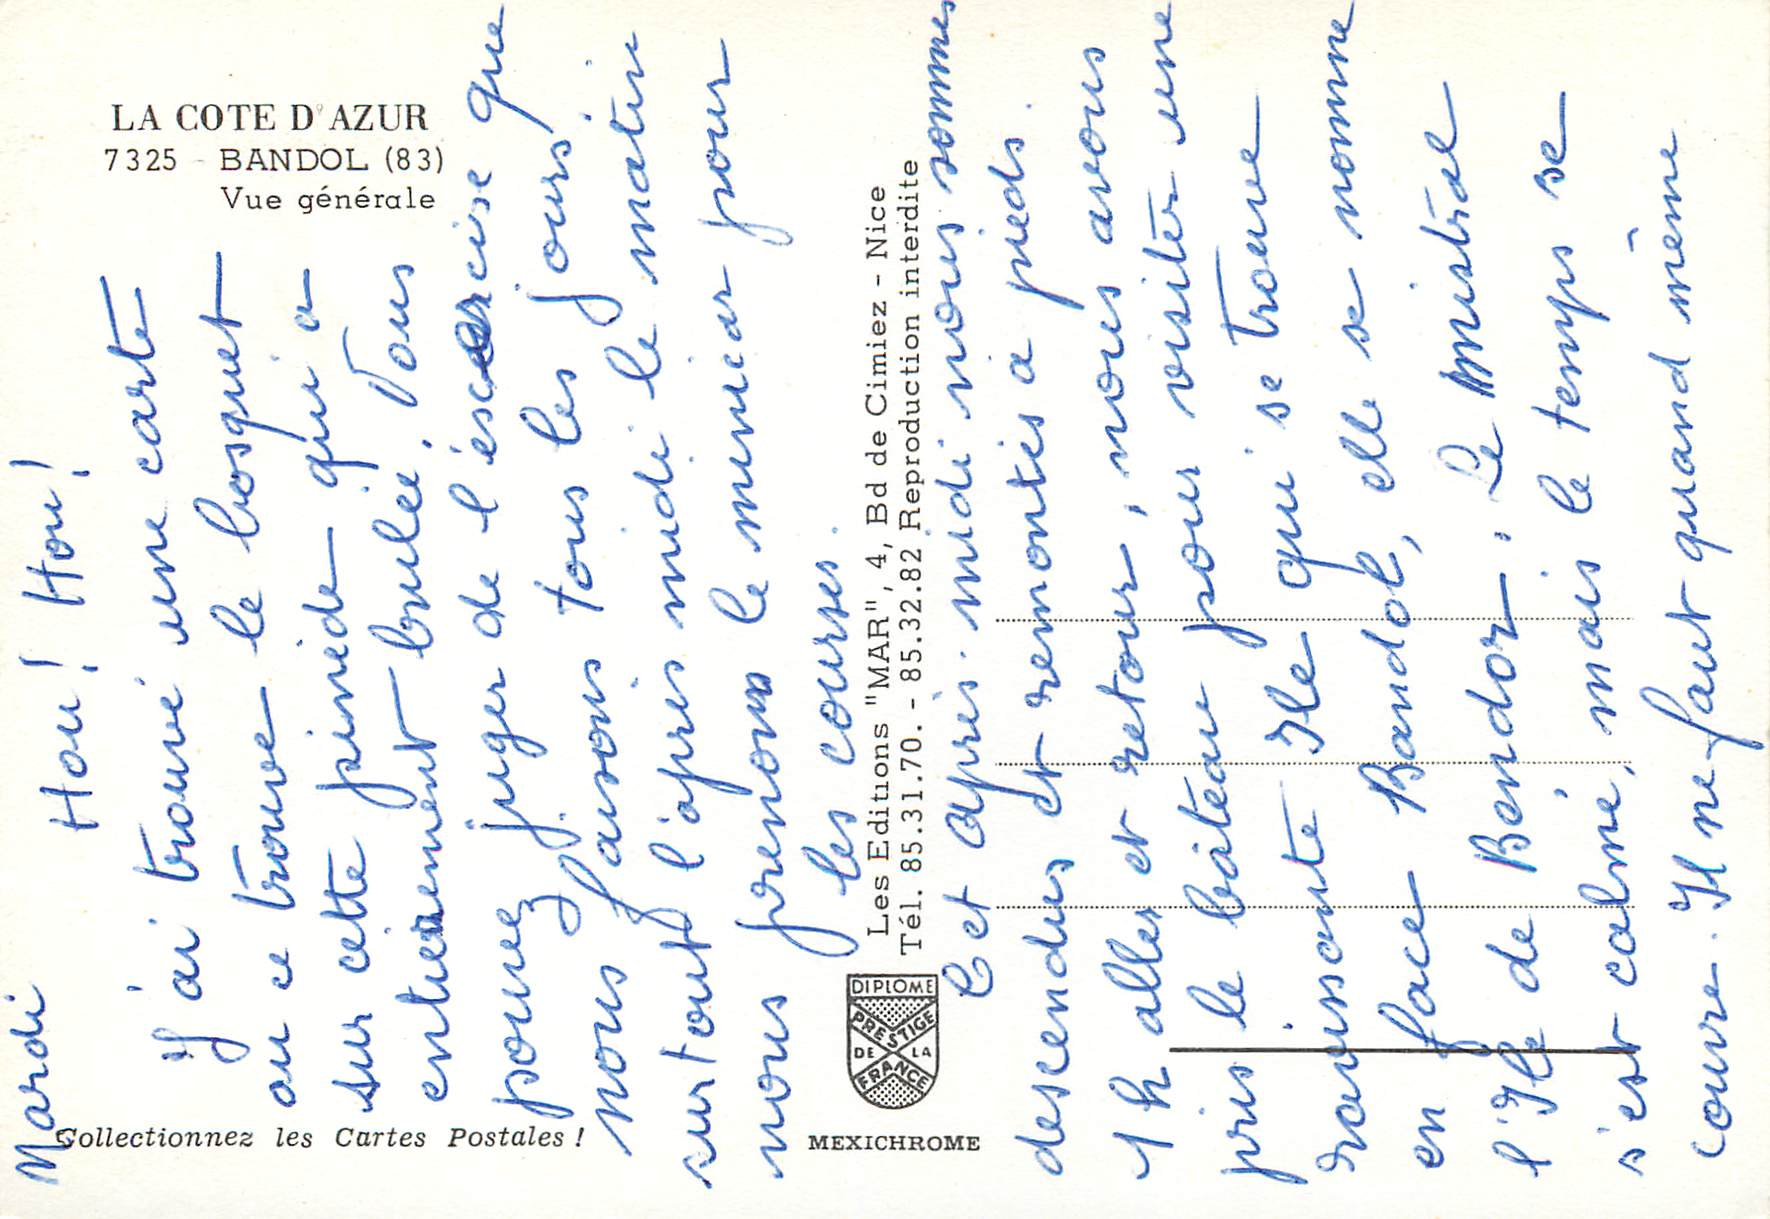 LA COTE D'AZUR
7325 - BANDOL (83)
Vue générale
Mardi
Hou! Hou! Hou!
J'ai trouvé une carte
ou ce trouve le bosquet
sur cette pinède qui a
entièrement brulée. Vous
pouvez juger de l'exercise que
nous faisons tous les jours,
surtout l'après midi le matin
nous prenons le minicar pour
les courses.
Les Editions "MAR", 4, Bd de Cimiez - Nice
Tél. 85.31.70. - 85.32.82 Reproduction interdite
DIPLOME
PRESTIGE
DE LA
FRANCE
Collectionnez les Cartes Postales !
MEXICHROME
Cet après-midi nous sommes
descendus et remontés à pieds.
1h aller et retour, nous avons
pris le bâteau pour visiter une
ravissante Ile qui se trouve
en face Bandol, elle se nomme
l'Ile de Bendor. Le mistral
s'est calmé, mais le temps se
couvre. Il ne faut quand même